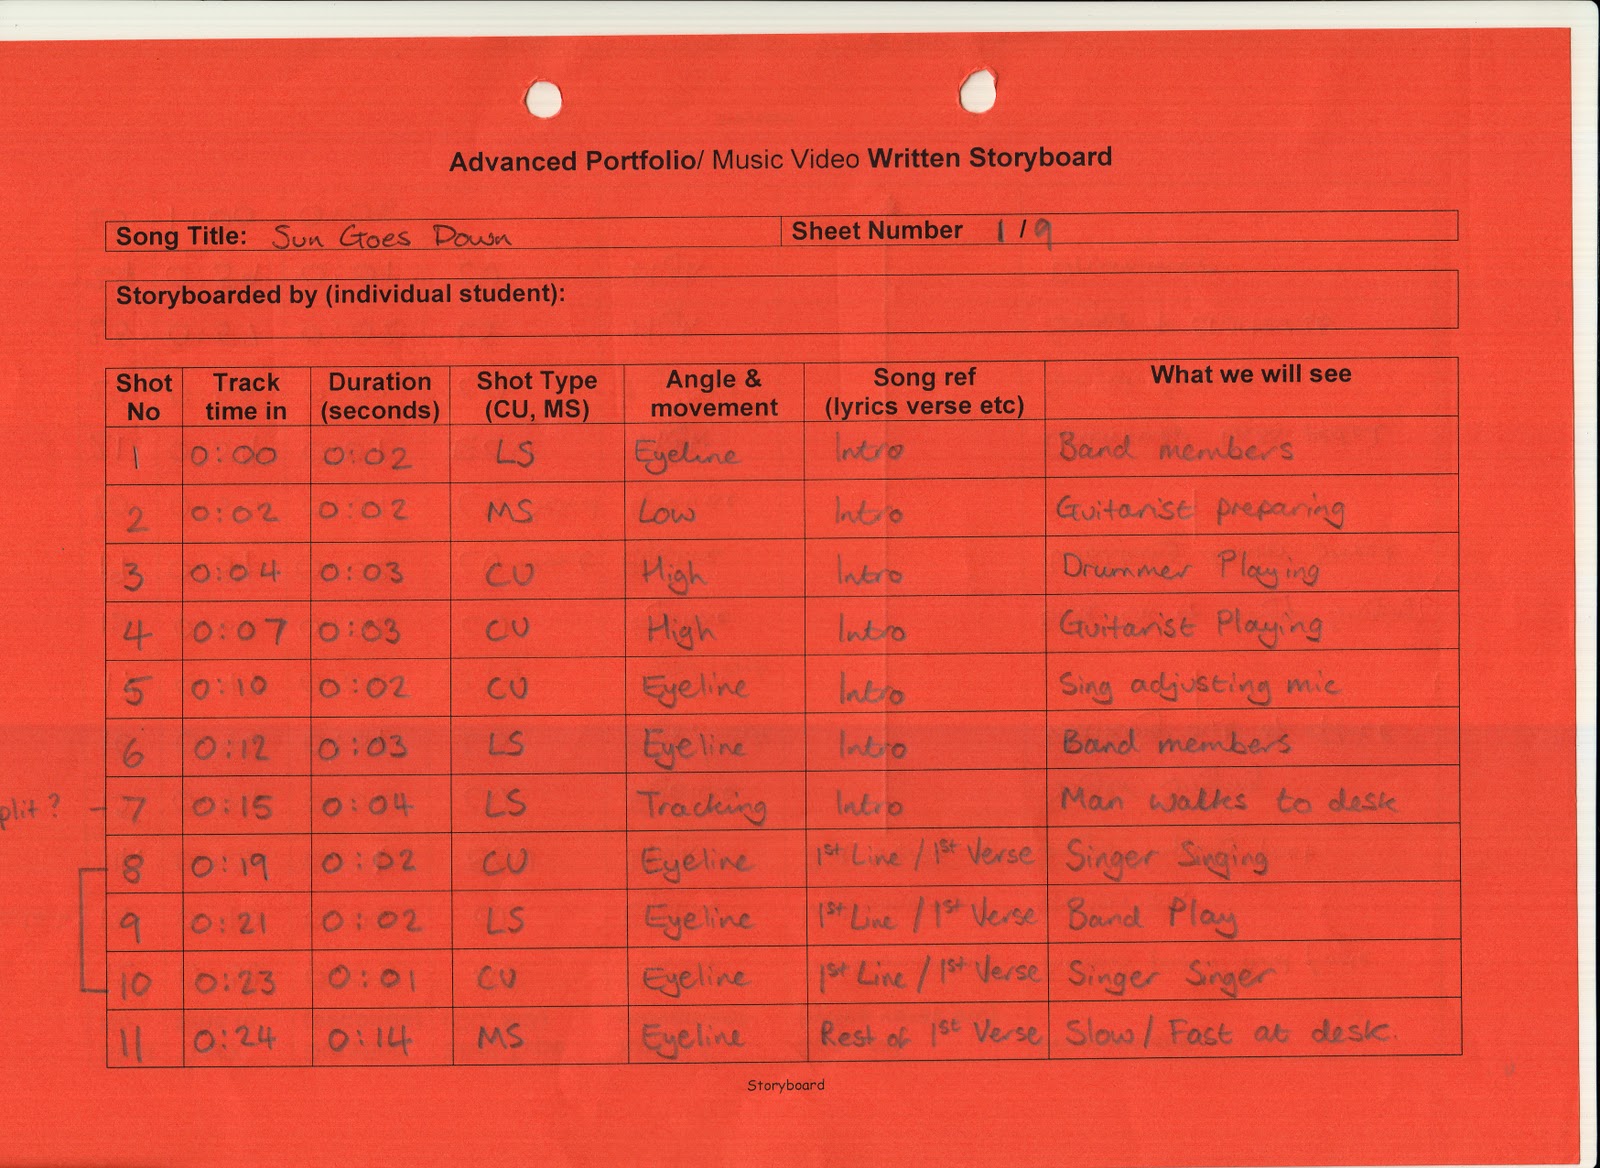 Advanced Portfolio/ Music Video Written Storyboard
Song Title: Sun Goes Down Sheet Number 1 / 9
Storyboarded by (individual student):
Shot No Track time in Duration (seconds) Shot Type (CU, MS) Angle & movement Song ref (lyrics verse etc) What we will see
1 0:00 0:02 LS Eyeline Intro Band members
2 0:02 0:02 MS Low Intro Guitarist preparing
3 0:04 0:03 CU High Intro Drummer Playing
4 0:07 0:03 CU High Intro Guitarist Playing
5 0:10 0:02 CU Eyeline Intro Sing adjusting mic
6 0:12 0:03 LS Eyeline Intro Band members
plit? - 7 0:15 0:04 LS Tracking Intro Man walks to desk
8 0:19 0:02 CU Eyeline 1st Line / 1st Verse Singer Singing
9 0:21 0:02 LS Eyeline 1st Line / 1st Verse Band Play
10 0:23 0:01 CU Eyeline 1st Line / 1st Verse Singer Singer
11 0:24 0:14 MS Eyeline Rest of 1st Verse Slow / Fast at desk.
Storyboard